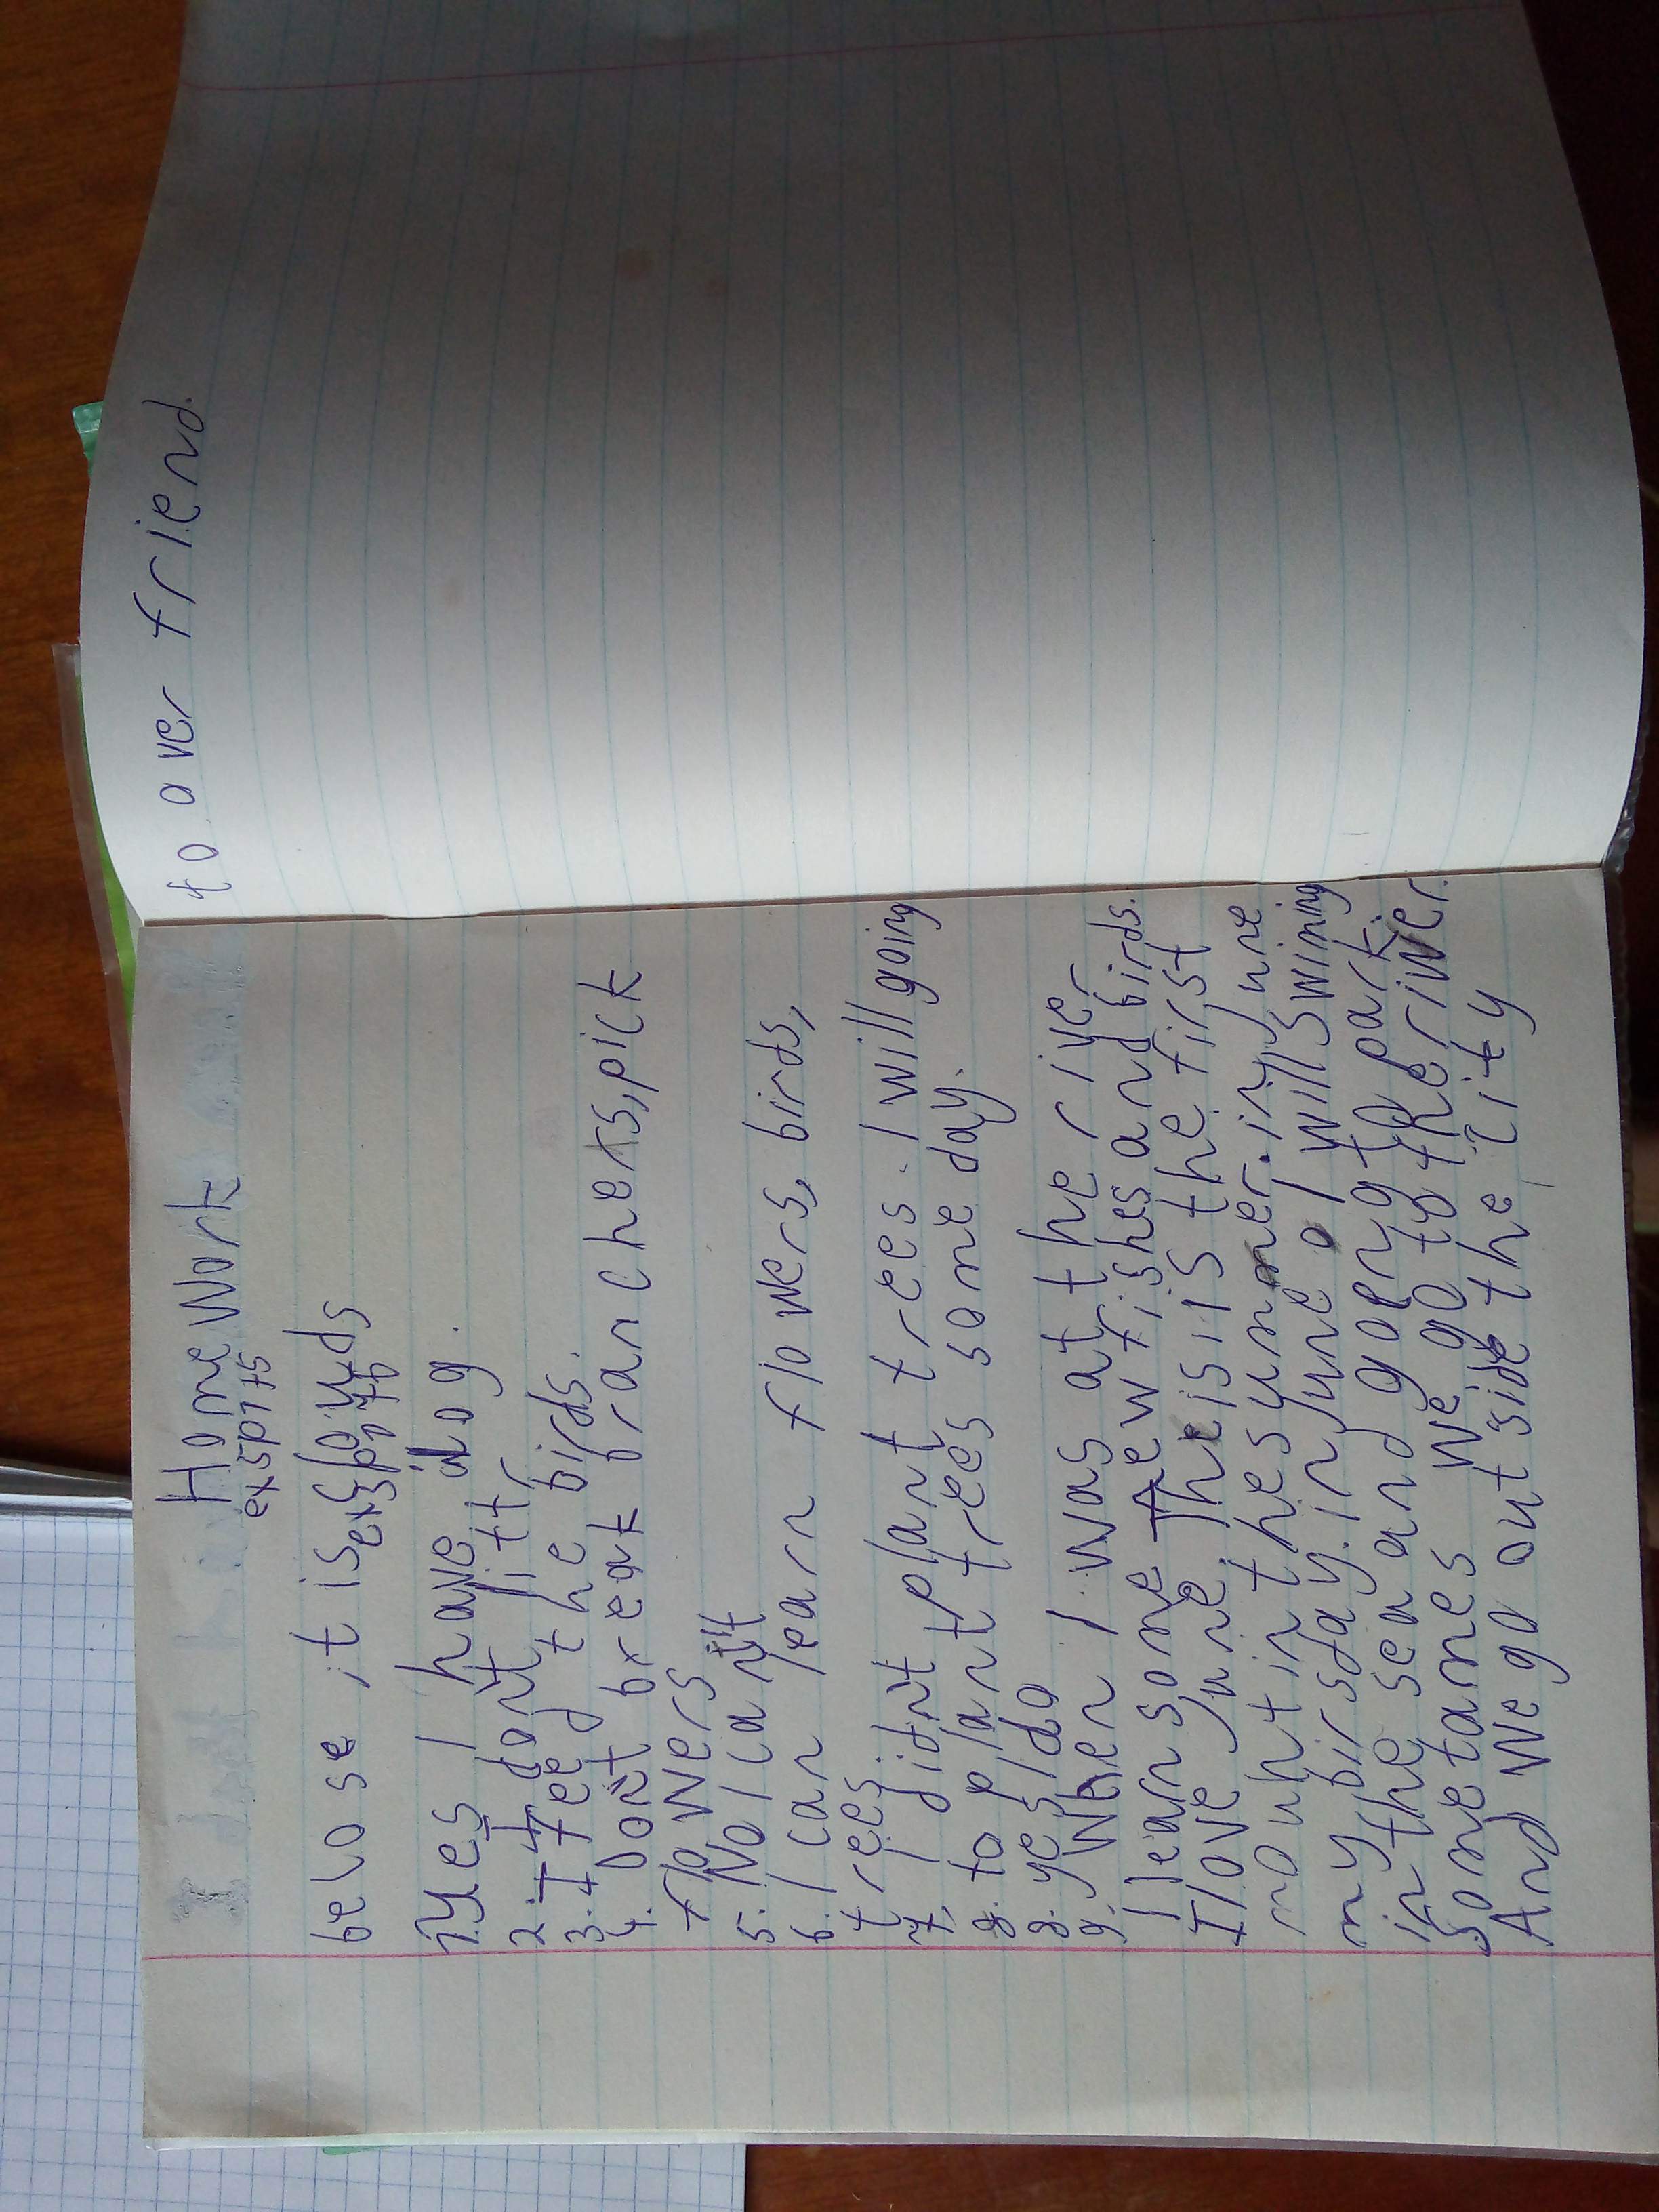 Home Work
ex5p175
belose it is
ex5p176
1. Yes I have dog.
2. I dont litt
3. I feed the birds.
4. Dont break branchers, pick
flowers
5. No I cant
6. I can learn flowers, birds,
trees
7. I didnt plant trees. I will going
8. to plant trees some day.
8. yes I do
9. When I was at the river
I learn some new fishes and birds.
I love June. The is: is the first
mounht in the summer. in June
my birsday. in June I will swining
in the sea and goeng to park.
Sometames we go to the river.
And we go out side the city
to over friend.